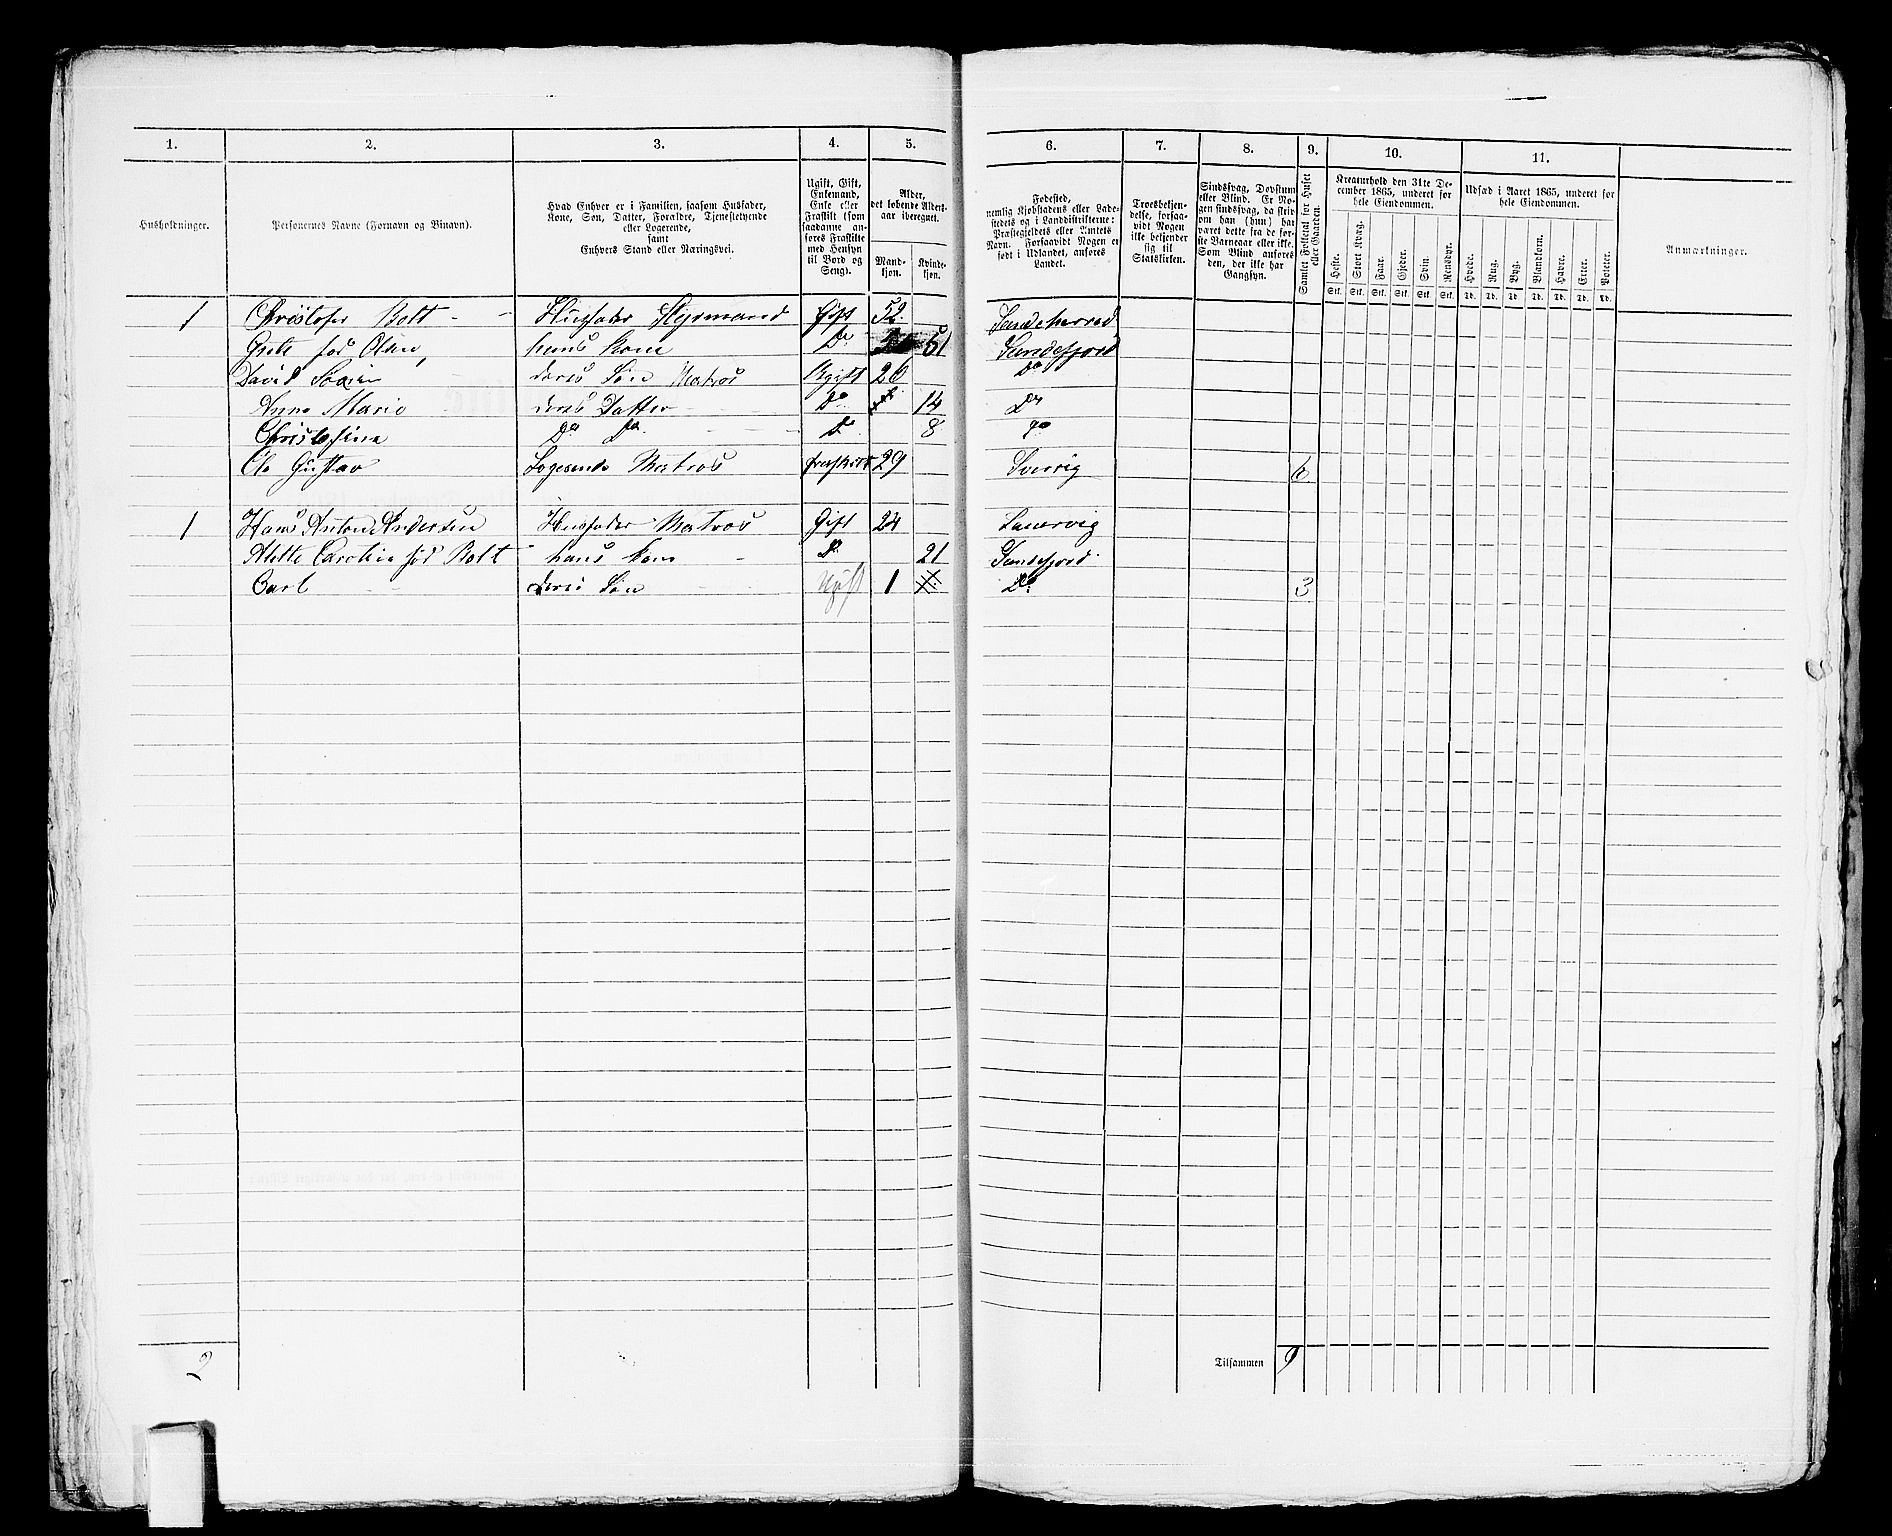 1. 2. 3. 4. 5. 6. 7. 8. 9. 10. 11.
Husholdninger.
Personernes Navne (Fornavn og Tilnavn).
Hvad Enhver er i Familien, saasom Husfader,
Kone, Søn, Datter, Forældre, Tjenestetyende
eller Logerende,
samt
Enhvers Stand eller Næringsvei.
Ugift, Gift,
Enkemand,
Enke eller
Fraskilt (som
saadanne an-
føres Fraskilte
med Hensyn
til Bord og
Seng).
Alder,
det løbende Alders-
aar iberegnet.
Mand-
kjøn.
Kvinde-
kjøn.
Fødested,
nemlig Kjøbstadens eller Lade-
stedets og i Landdistrikterne:
Præstegjeldets eller Amtets
Navn. Forsaavidt Nogen er
født i Udlandet, anføres
Landet.
Troesbekjen-
delse, forsaa-
vidt Nogen
ikke bekjender
sig til
Statskirken.
Sindssvag, Døvstum
eller Blind. Er No-
gen sindssvag, da skriv
om han (hun) har
været dette fra de før-
ste Barneaar eller ikke.
Som Blind anføres
den, der ikke har
Gangsyn.
Samlet Folketal for Huset
eller Gaarden.
Kreaturhold den 31te De-
cember 1865, underet for
hele Eiendommen.
Heste. Stort Kvæg. Faar. Gjeder. Svin. Rensdyr.
Stk. Stk. Stk. Stk. Stk. Stk.
Udsæd i Aaret 1865, underet for
hele Eiendommen.
Hvede. Rug. Byg. Blandkorn. Havre. Erter. Poteter.
Td. Td. Td. Td. Td. Td. Td.
Anmærkninger.
1 Christofer Bolt Husfader Styrmand Gift 52 Sandeherred
Grete fød Olsen, hans Kone Do 51 Sandefjord
David deres Søn Matros Ugift 26 Do
Anne Marie deres Datter Do 14 Do
Christofine Do Do Do 8 Do
Ole Gustav Logerende Matros fraskilt 29 Sverrig 6
1 Hans Anton Andersen Husfader Matros Gift 24 Laurvig
Mette Caroline fød Bolt hans Kone Do 21 Sandefjord
Carl deres Søn Ugift 1 Do 3
2 Tilsammen 9